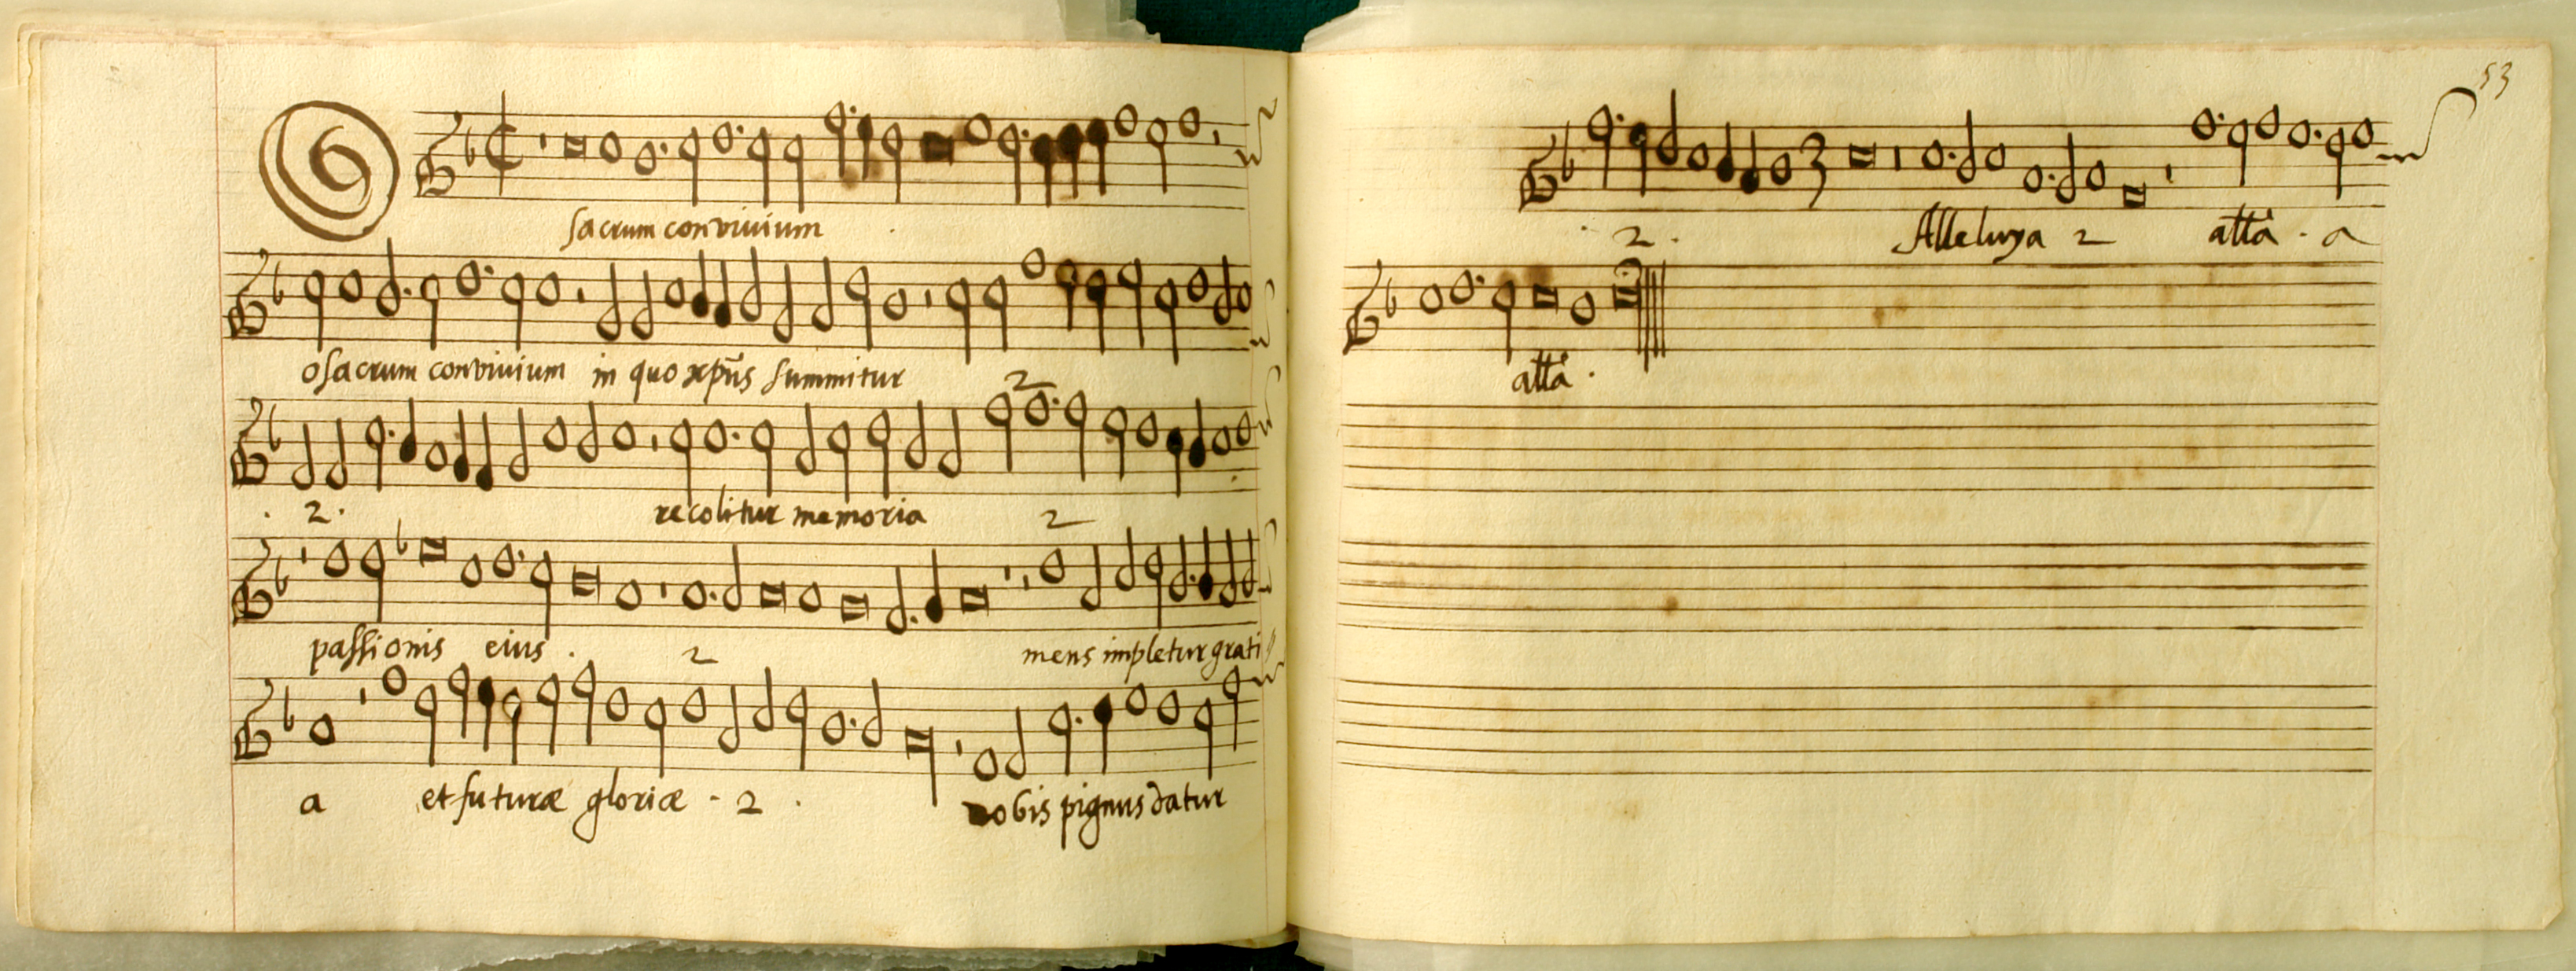 O sacrum convivium
o sacrum convivium in quo xpūs summitur
. 2 . recolitur memoria 2
passionis eius . 2 mens impletur grati
a et futuræ gloriæ . 2 . nobis pignus datur
53
. 2 . Alleluya 2 alla . a
alla .